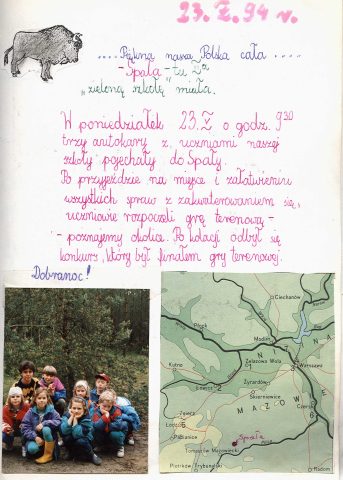 23. X. 94 r.
.... Piękna nasza Polska cała ....
- Spała - tu Va
„zieloną szkołę" miała.
W poniedziałek 23. X o godz. 9³⁰
trzy autokary z uczniami naszej
szkoły pojechały do Spały.
Po przyjeździe na miejsce i załatwieniu
wszystkich spraw z zakwaterowaniem się,
uczniowie rozpoczeli grę terenową -
- poznajemy okolice. Po kolacji odbył się
konkurs, który był finałem gry terenowej.
Dobranoc!
Ciechanów
Płock
Modlin
Kutno
Żelazowa Wola
Warszawa
Łowicz
Żyrardów
Skierniewice
MAZOWSZE
Czersk
Zgierz
Łódź
Pabianice
Spała
Tomaszów Mazowiecki
Piotrków Trybunalski
Radom